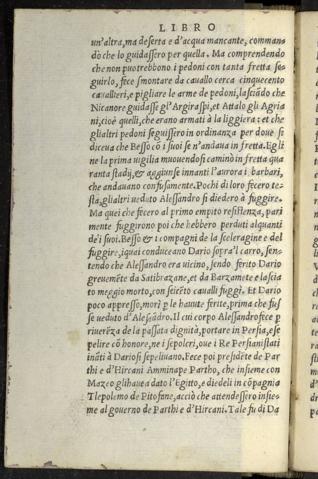 LIBRO
un'altra, ma deserta e d'acqua mancante, comman
dò che lo guidassero per quella. Ma comprendendo
che non puotrebbono i pedoni con tanta fretta se-
guirlo, fece smontare da cauallo cerca cinquecento
cauallieri, e pigliare le arme de pedoni, lasciãdo che
Nicanore guidasse gl'Argiraspi, et Attalo gli Agria
ni, cioè quelli, che erano armati à la liggiera: et che
glialtri pedoni seguissero in ordinanza per doue si
diceua che Besso cõ i suoi se n'andaua in fretta. Egli
ne la prima uigilia muouendosi caminò in fretta qua
ranta stadij, & aggiunse innanti l'aurora i barbari,
che andauano confusamente. Pochi di loro fecero te-
sta, glialtri ueduto Alessandro si diedero à fuggire.
Ma quei che fecero al primo empito resistenza, pari
mente fuggirono poi che hebbero perduti alquanti
de'i suoi. Besso & i compagni de la sceleragine e del
fuggire, i quai conduceano Dario sopra'l carro, sen-
tendo che Alessandro era uicino, sendo ferito Dario
greuemẽte da Satibrazane, et da Barzamete e lascia
to meggio morto, con seicẽto caualli fuggì. Et Dario
poco appresso, morì p le hauute ferite, prima che fus
se ueduto d'Alesãdro. Il cui corpo Alessandro fece p
riuerẽza de la passata dignità, portare in Persia, e se
pelire cõ honore, ne i sepolcri, oue i Re Persiani stati
inãti à Dario si sepeliuano. Fece poi presidẽte de Par
thi e d'Hircani Amminape Partho, che insieme con
Mazeo glihauea dato l'Egitto, e diedeli in cõpagnia
Tlepolemo de Pitofane, acciò che attendessero insie-
me al gouerno de Parthi e d'Hircani. Tale fu di Da